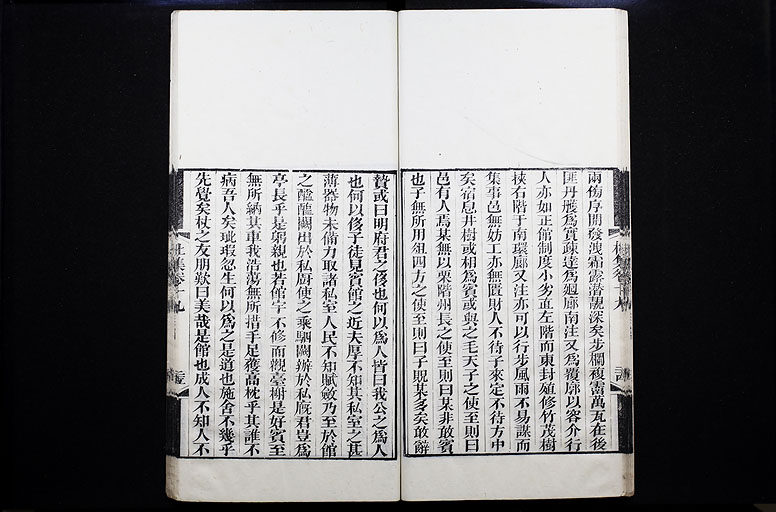 兩傍序開發洩霜露潛靚深矣步欄複霤萬瓦在後
匪丹雘爲實疎達爲迴廊南注又爲覆廊以容介行
人亦如正館制度小劣直左階而東封殖修竹茂樹
挾右階于南環廊又注亦可以行步風雨不易謀而
集事邑無妨工亦無匱財人不待子來定不待方中
矣宿息井樹或相爲賓或與之毛天子之使至則曰
邑有人焉某無以栗階州長之使至則曰某非敢賓
也子無所用俎四方之使至則曰子貺某多矣敢辭
贄或曰明府君之侈也何以爲人皆曰我公之爲人
也何以侈子徒見賓館之近夫厚不知其私室之甚
薄器物未備力取諸私室人民不知賦斂乃至於館
之醯醢闕出於私廚使之乘駟闕辦於私廄君豈爲
亭長乎是躬親也若館宇不修而觀臺榭是好賓至
無所納其車我浩蕩無所措手足獲高枕乎其誰不
病吾人矣玼瑕忽生何以爲之是道也施舍不幾乎
先覺矣杖之友朋歎曰美哉是館也成人不知人不